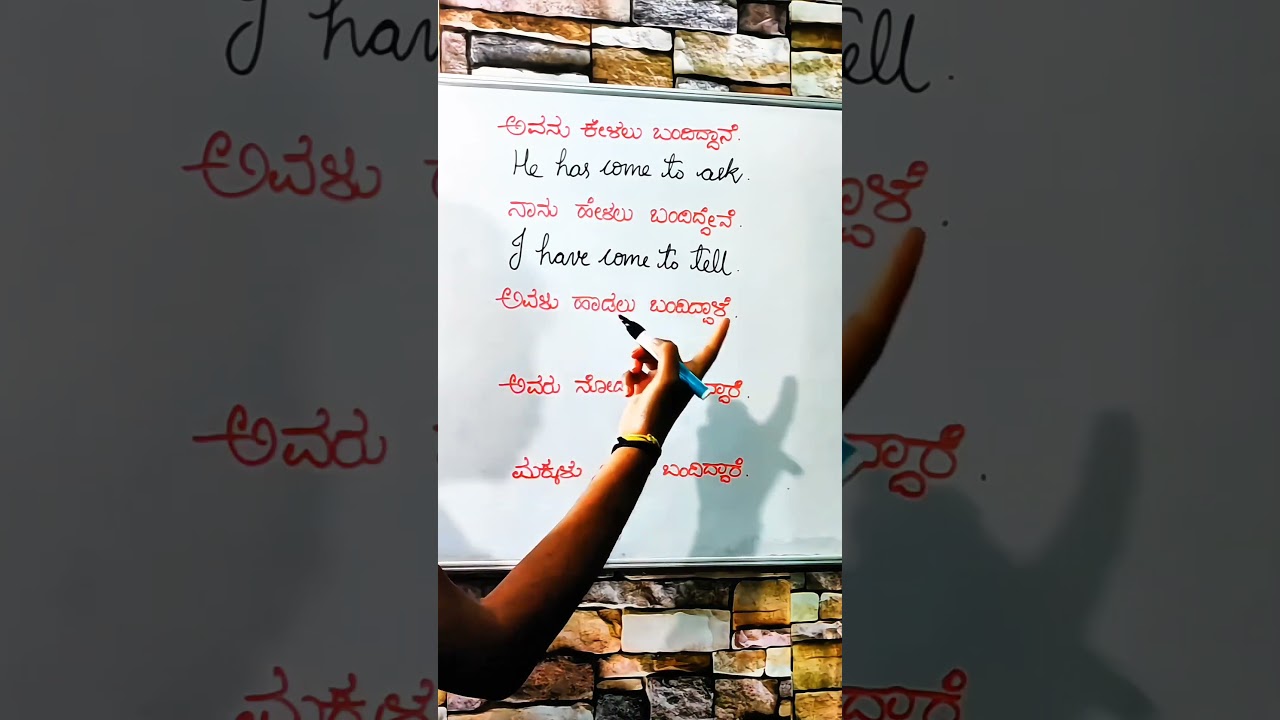 ಅವನು ಕೇಳಲು ಬಂದಿದ್ದಾನೆ.
He has come to ask.
ನಾನು ಹೇಳಲು ಬಂದಿದ್ದೇನೆ.
I have come to tell.
ಅವಳು ಹಾಡಲು ಬಂದಿದ್ದಾಳೆ.
ಅವರು
ಮಕ್ಕಳು ಬಂದಿದ್ದಾರೆ.